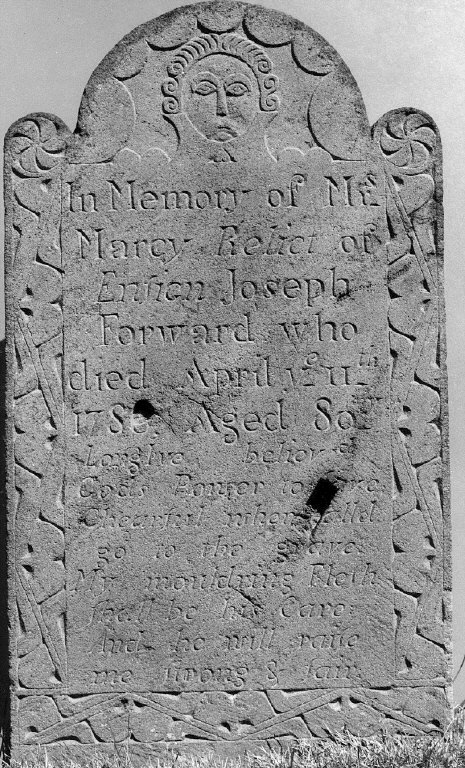 In Memory of Mrs
Marcy Relict of
Ensign Joseph
Forward who
died April ye 11th
Aged 80
Gods Power to
Chearful when
go to the grave
My mouldring Flesh
shall be his Care
And he will raise
me strong & fair